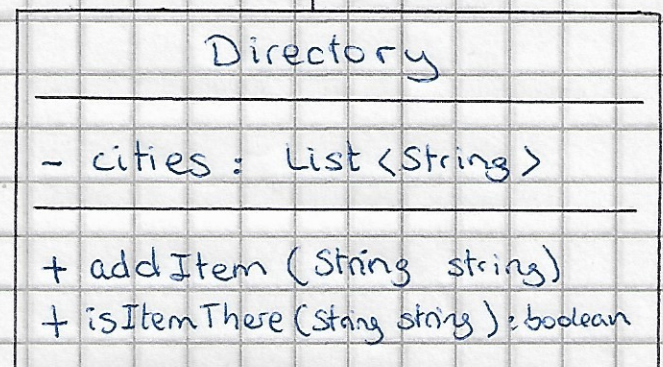 Directory
- cities : List <String>
+ addItem (String string)
+ isItemThere (String string) : boolean